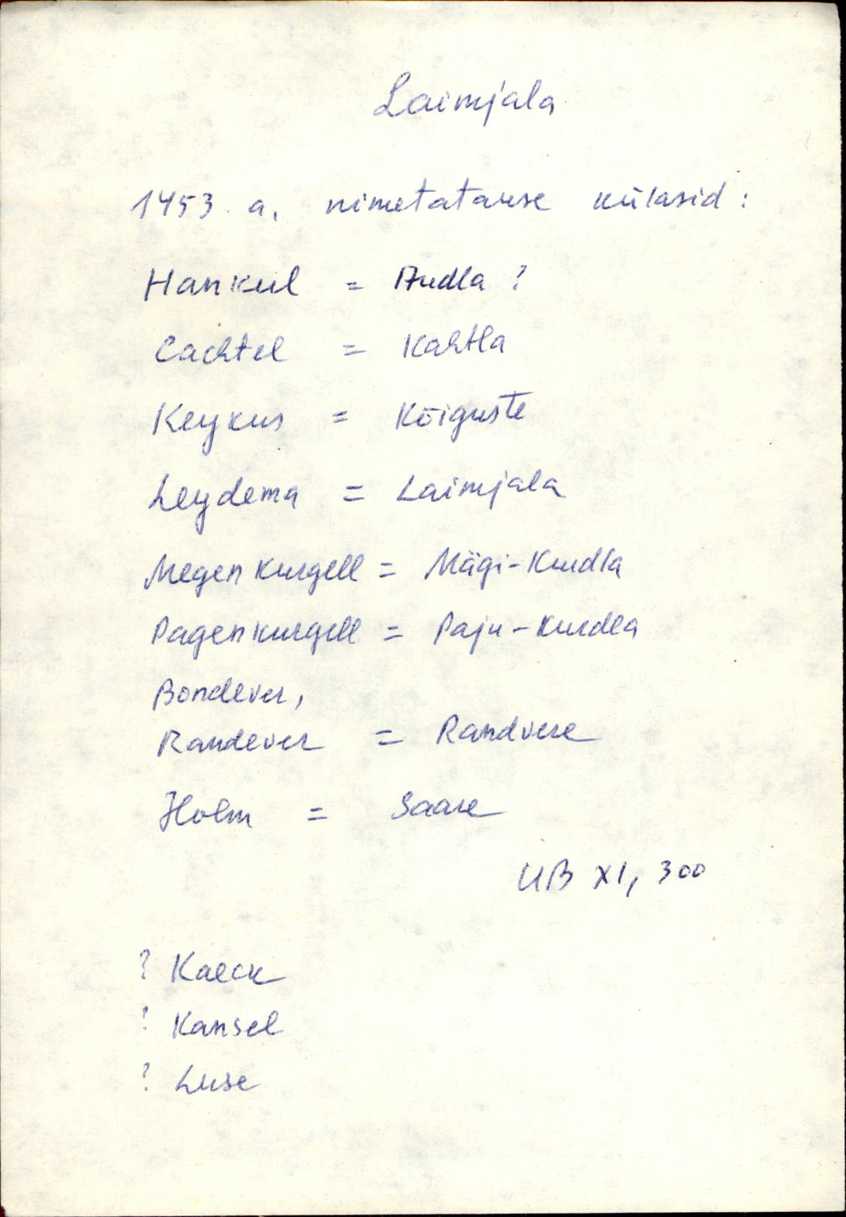 Laimjala
1453. a. nimetatakse külasid:
Hankul = Audla ?
Cachtel = Kahtla
Keykus = Kõiguste
Leydema = Laimjala
Megenkurgell = Mägi-Kurdla
Pagenkurgell = Paju-Kurdla
Bondever,
Randever = Randvere
Holm = Saare
UB XI, 300
? Kaeck
? Kansel
? Luse